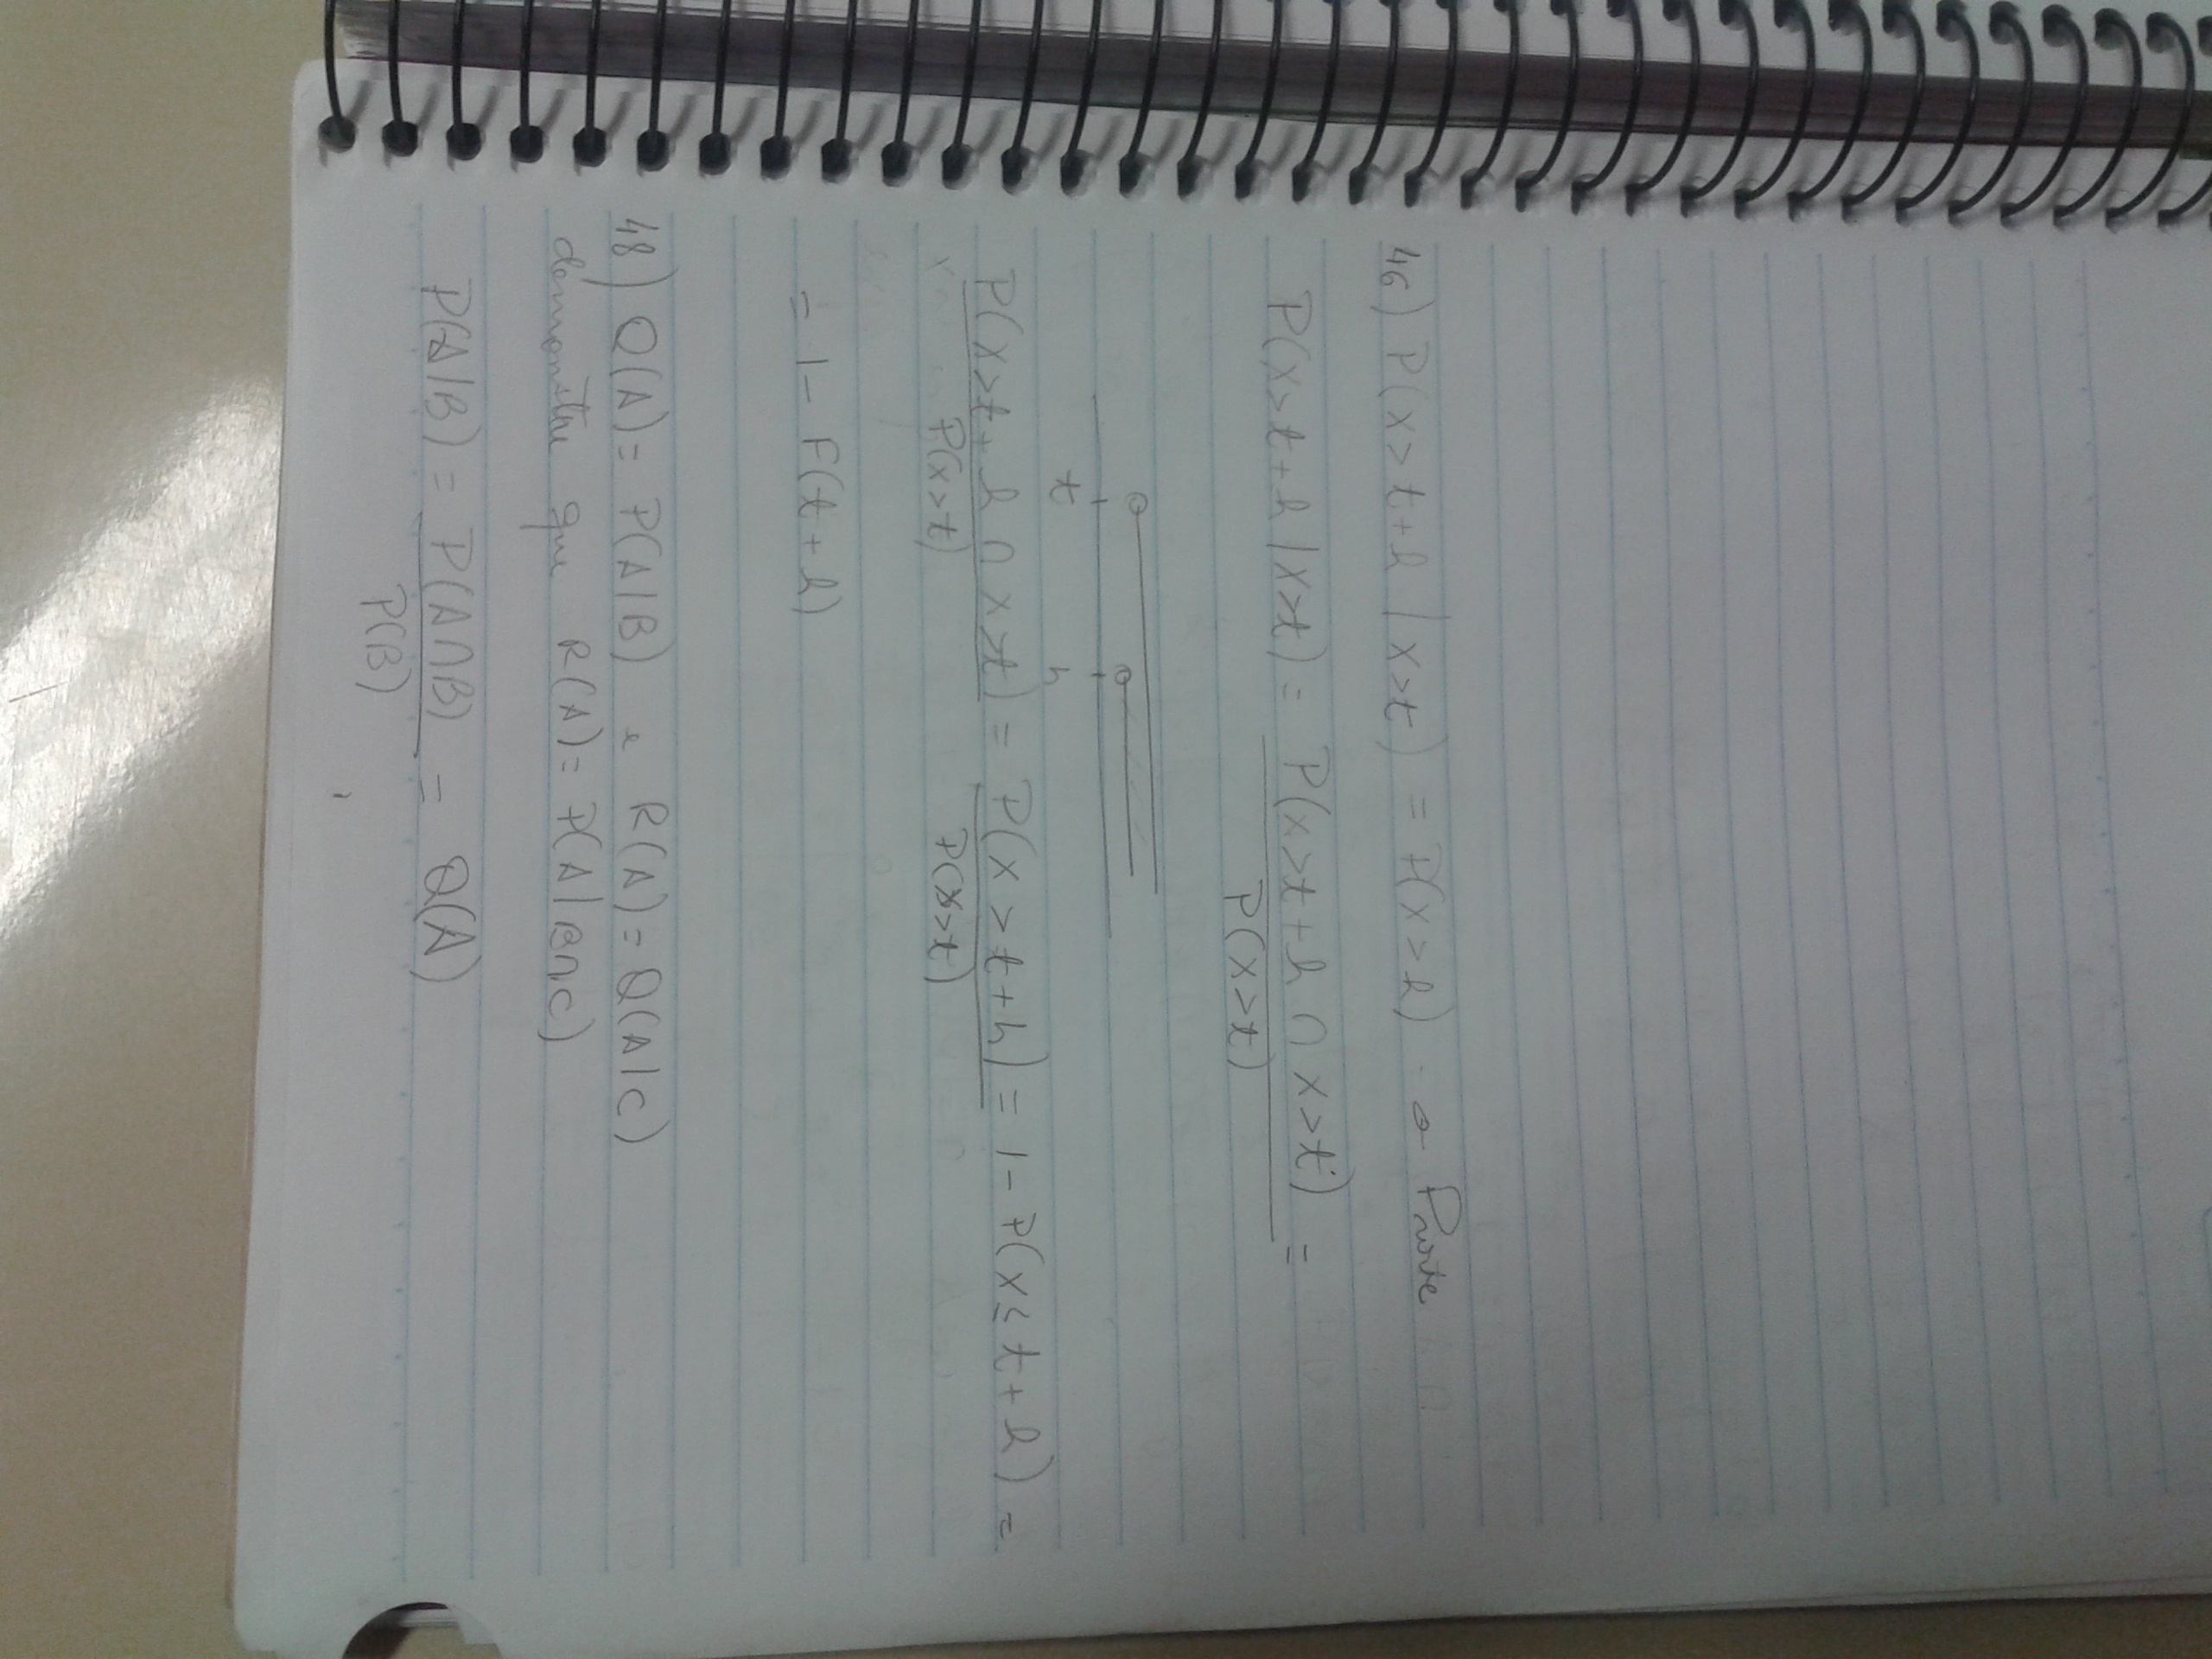 46) P(x>t+h | x>t) = P(x>h) → Prove
P(x>t+h | x>t) = P(x>t+h ∩ x>t) =
P(x>t)
t h
P(x>t+h ∩ x>t) = P(x>t+h) = 1 - P(x≤t+h) =
P(x>t) P(x>t)
= 1 - F(t+h)
48) Q(A) = P(A|B) e R(A) = Q(A|C)
demonstre que R(A) = P(A|B∩C)
P(A|B) = P(A∩B) = Q(A)
P(B)